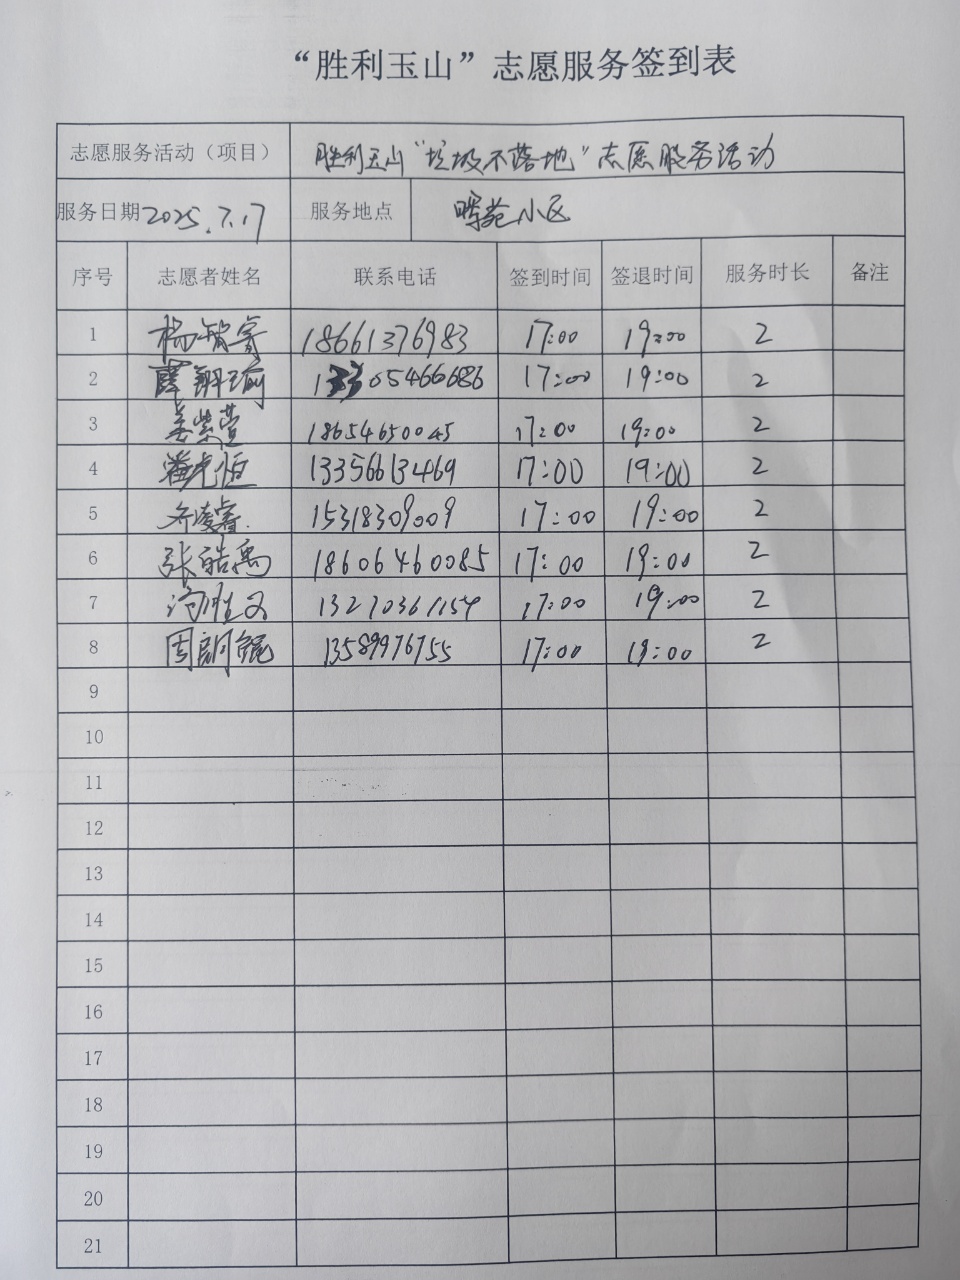 “胜利玉山”志愿服务签到表
志愿服务活动（项目） 胜利玉山“垃圾不落地”志愿服务活动
服务日期 2025.7.17 服务地点 晖苑小区
序号 志愿者姓名 联系电话 签到时间 签退时间 服务时长 备注
1 杨智睿 18661376983 17:00 19:00 2
2 薛翔瑜 13305466686 17:00 19:00 2
3 姜紫萱 18654650045 17:00 19:00 2
4 13356613469 17:00 19:00 2
5 齐凌睿 15318309009 17:00 19:00 2
6 张皓禹 18606460085 17:00 19:00 2
7 13270361154 17:00 19:00 2
8 13589976755 17:00 19:00 2
9
10
11
12
13
14
15
16
17
18
19
20
21